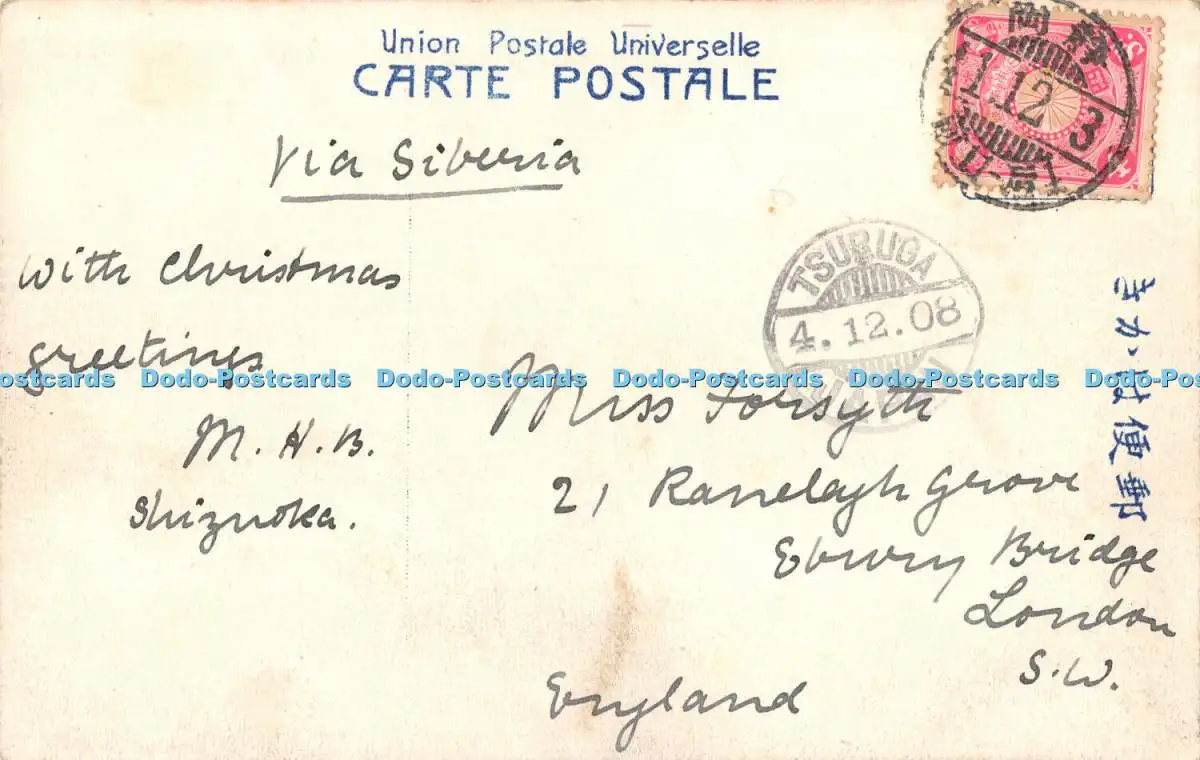 Union Postale Universelle
CARTE POSTALE
Via Siberia
With Christmas
greetings
M. H. B.
Shizuoka.
TSURUGA
4.12.08
JAPAN
Miss Forsyth
21 Ranelagh Grove
Ebury Bridge
London
S.W.
England
きかは便郵
岡静
41.12.3
Dodo-Postcards Dodo-Postcards Dodo-Postcards Dodo-Postcards Dodo-Postcards Dodo-Postcards